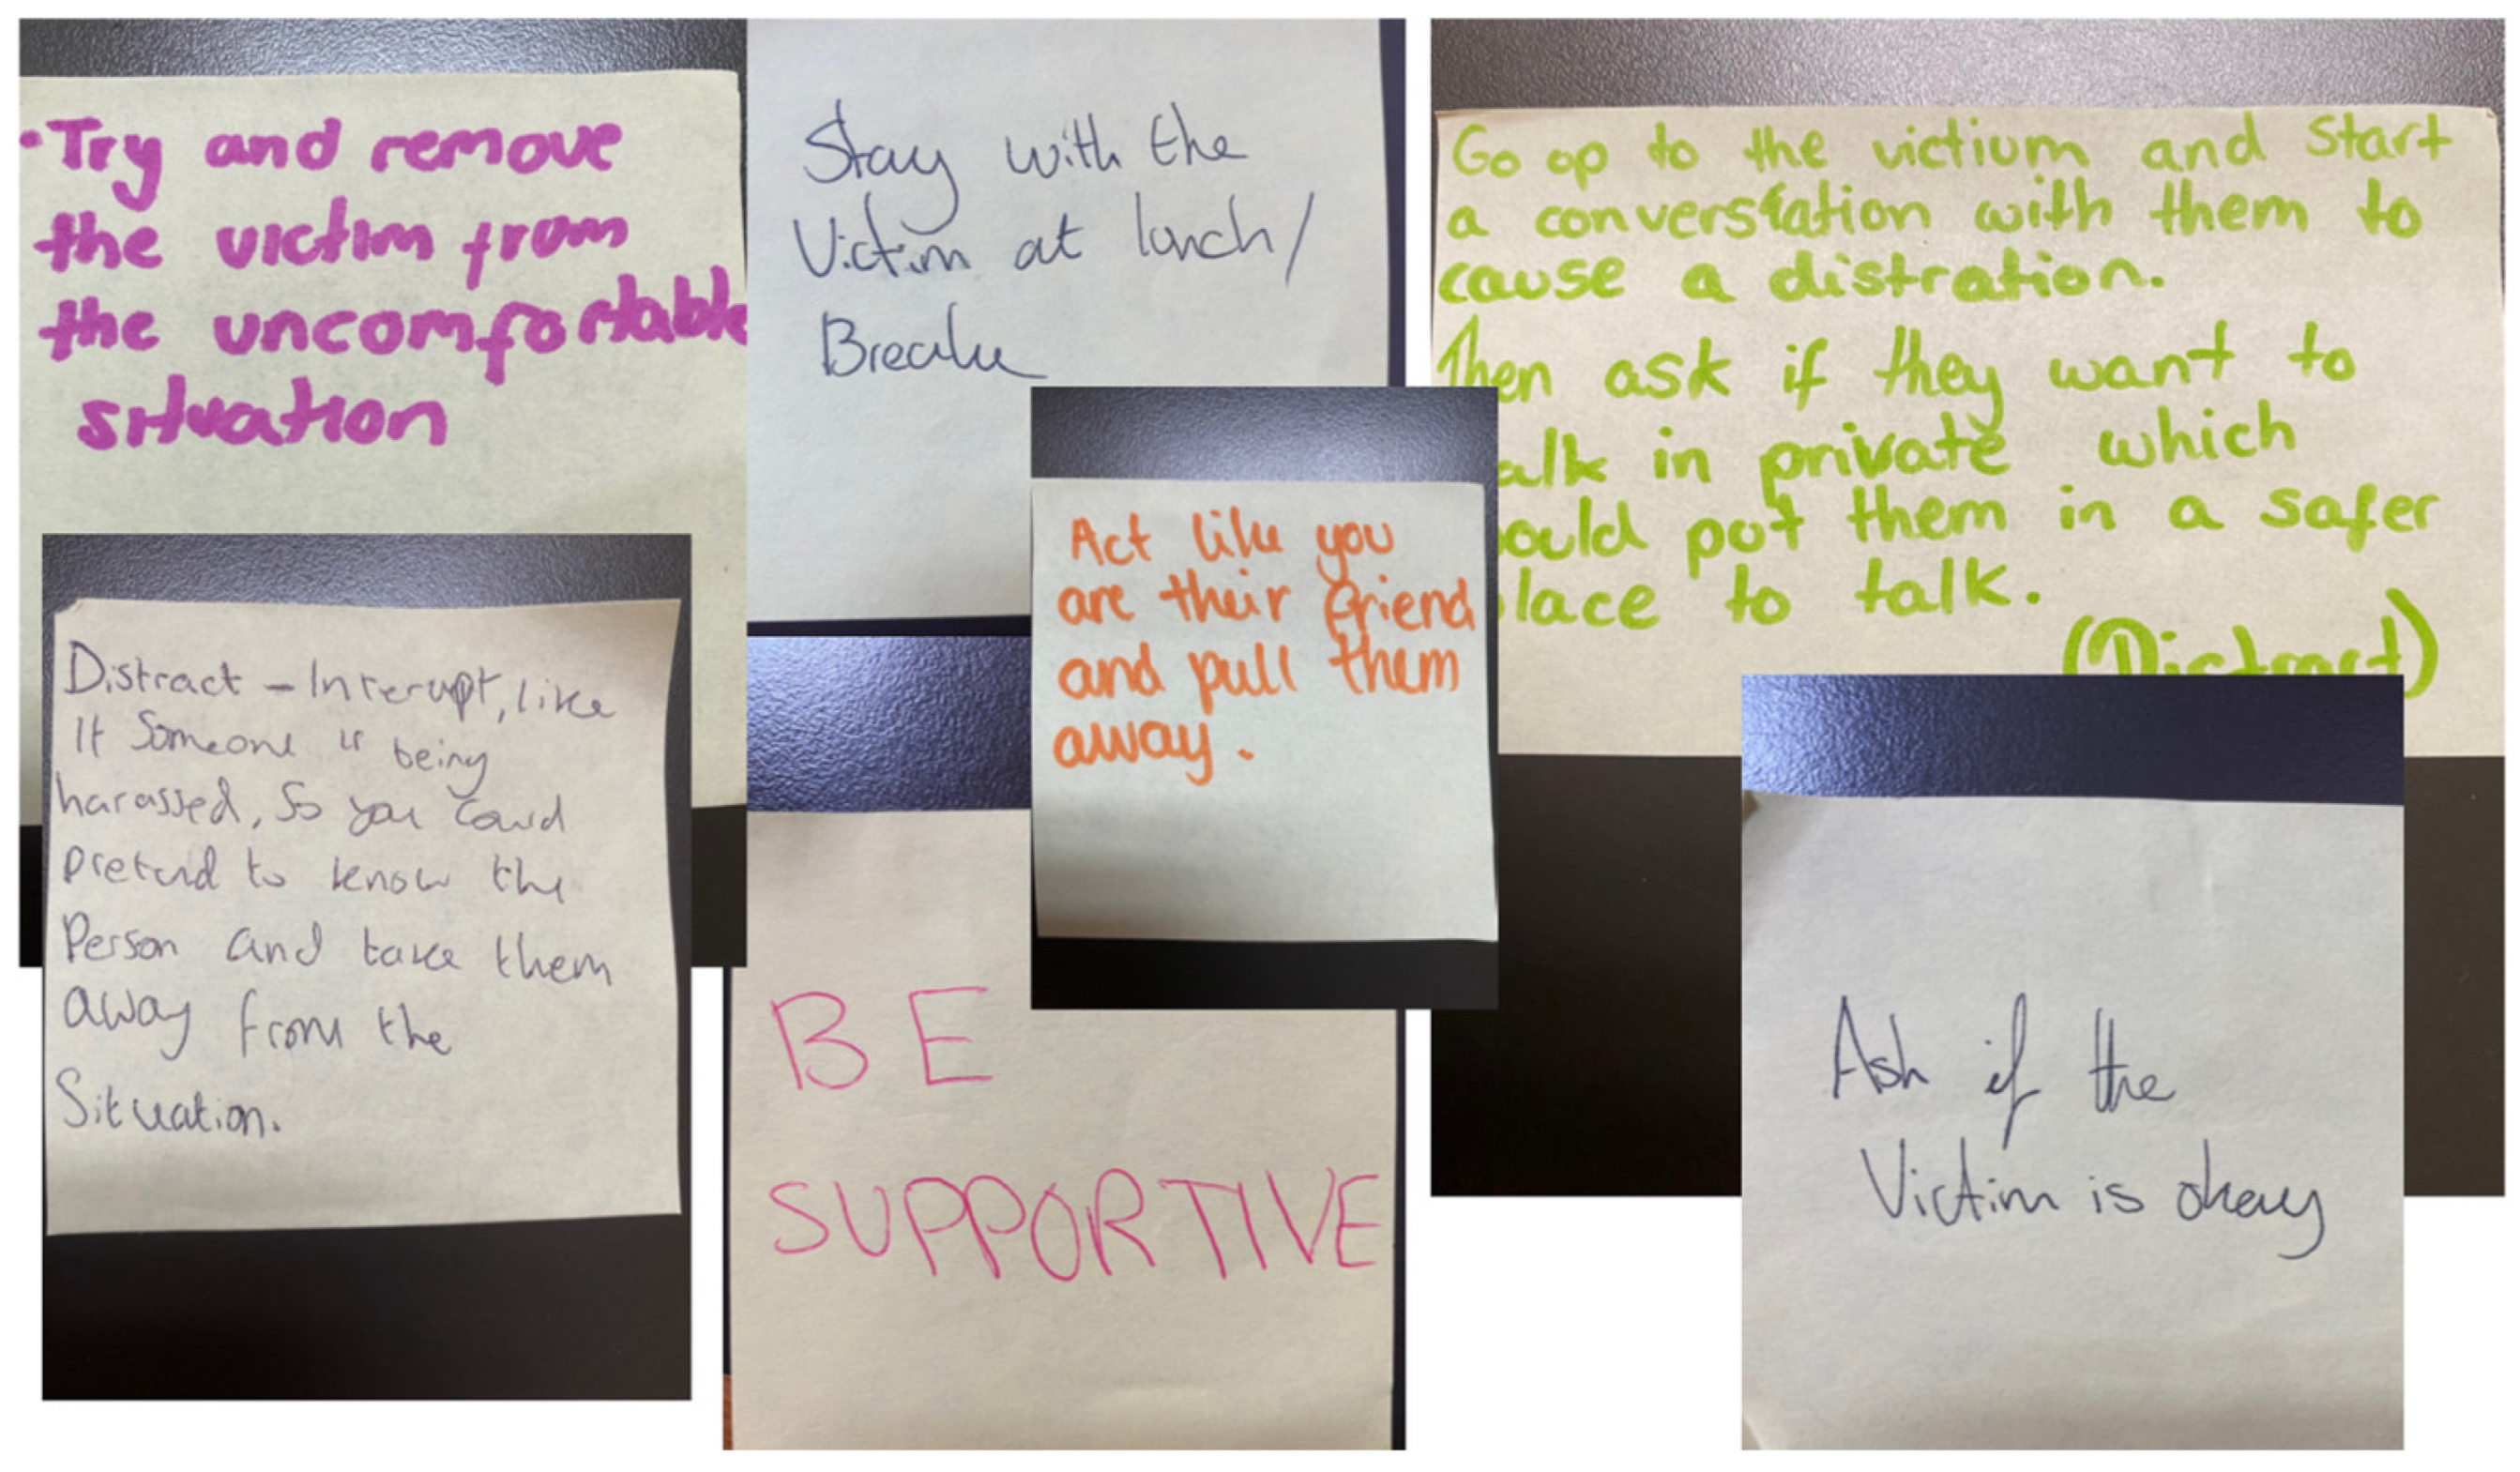 ·Try and remove
the victim from
the uncomfortable
situation
Stay with the
Victim at lunch/
Break
Go up to the victium and start
a converstation with them to
cause a distration.
Then ask if they want to
alk in private which
ould put them in a safer
lace to talk.
(Distract)
Act like you
are their friend
and pull them
away.
Distract - Interupt, like
If Someone is being
harassed, So you could
pretend to know the
Person and take them
away from the
Situation.
BE
SUPPORTIVE
Ask if the
Victim is okay